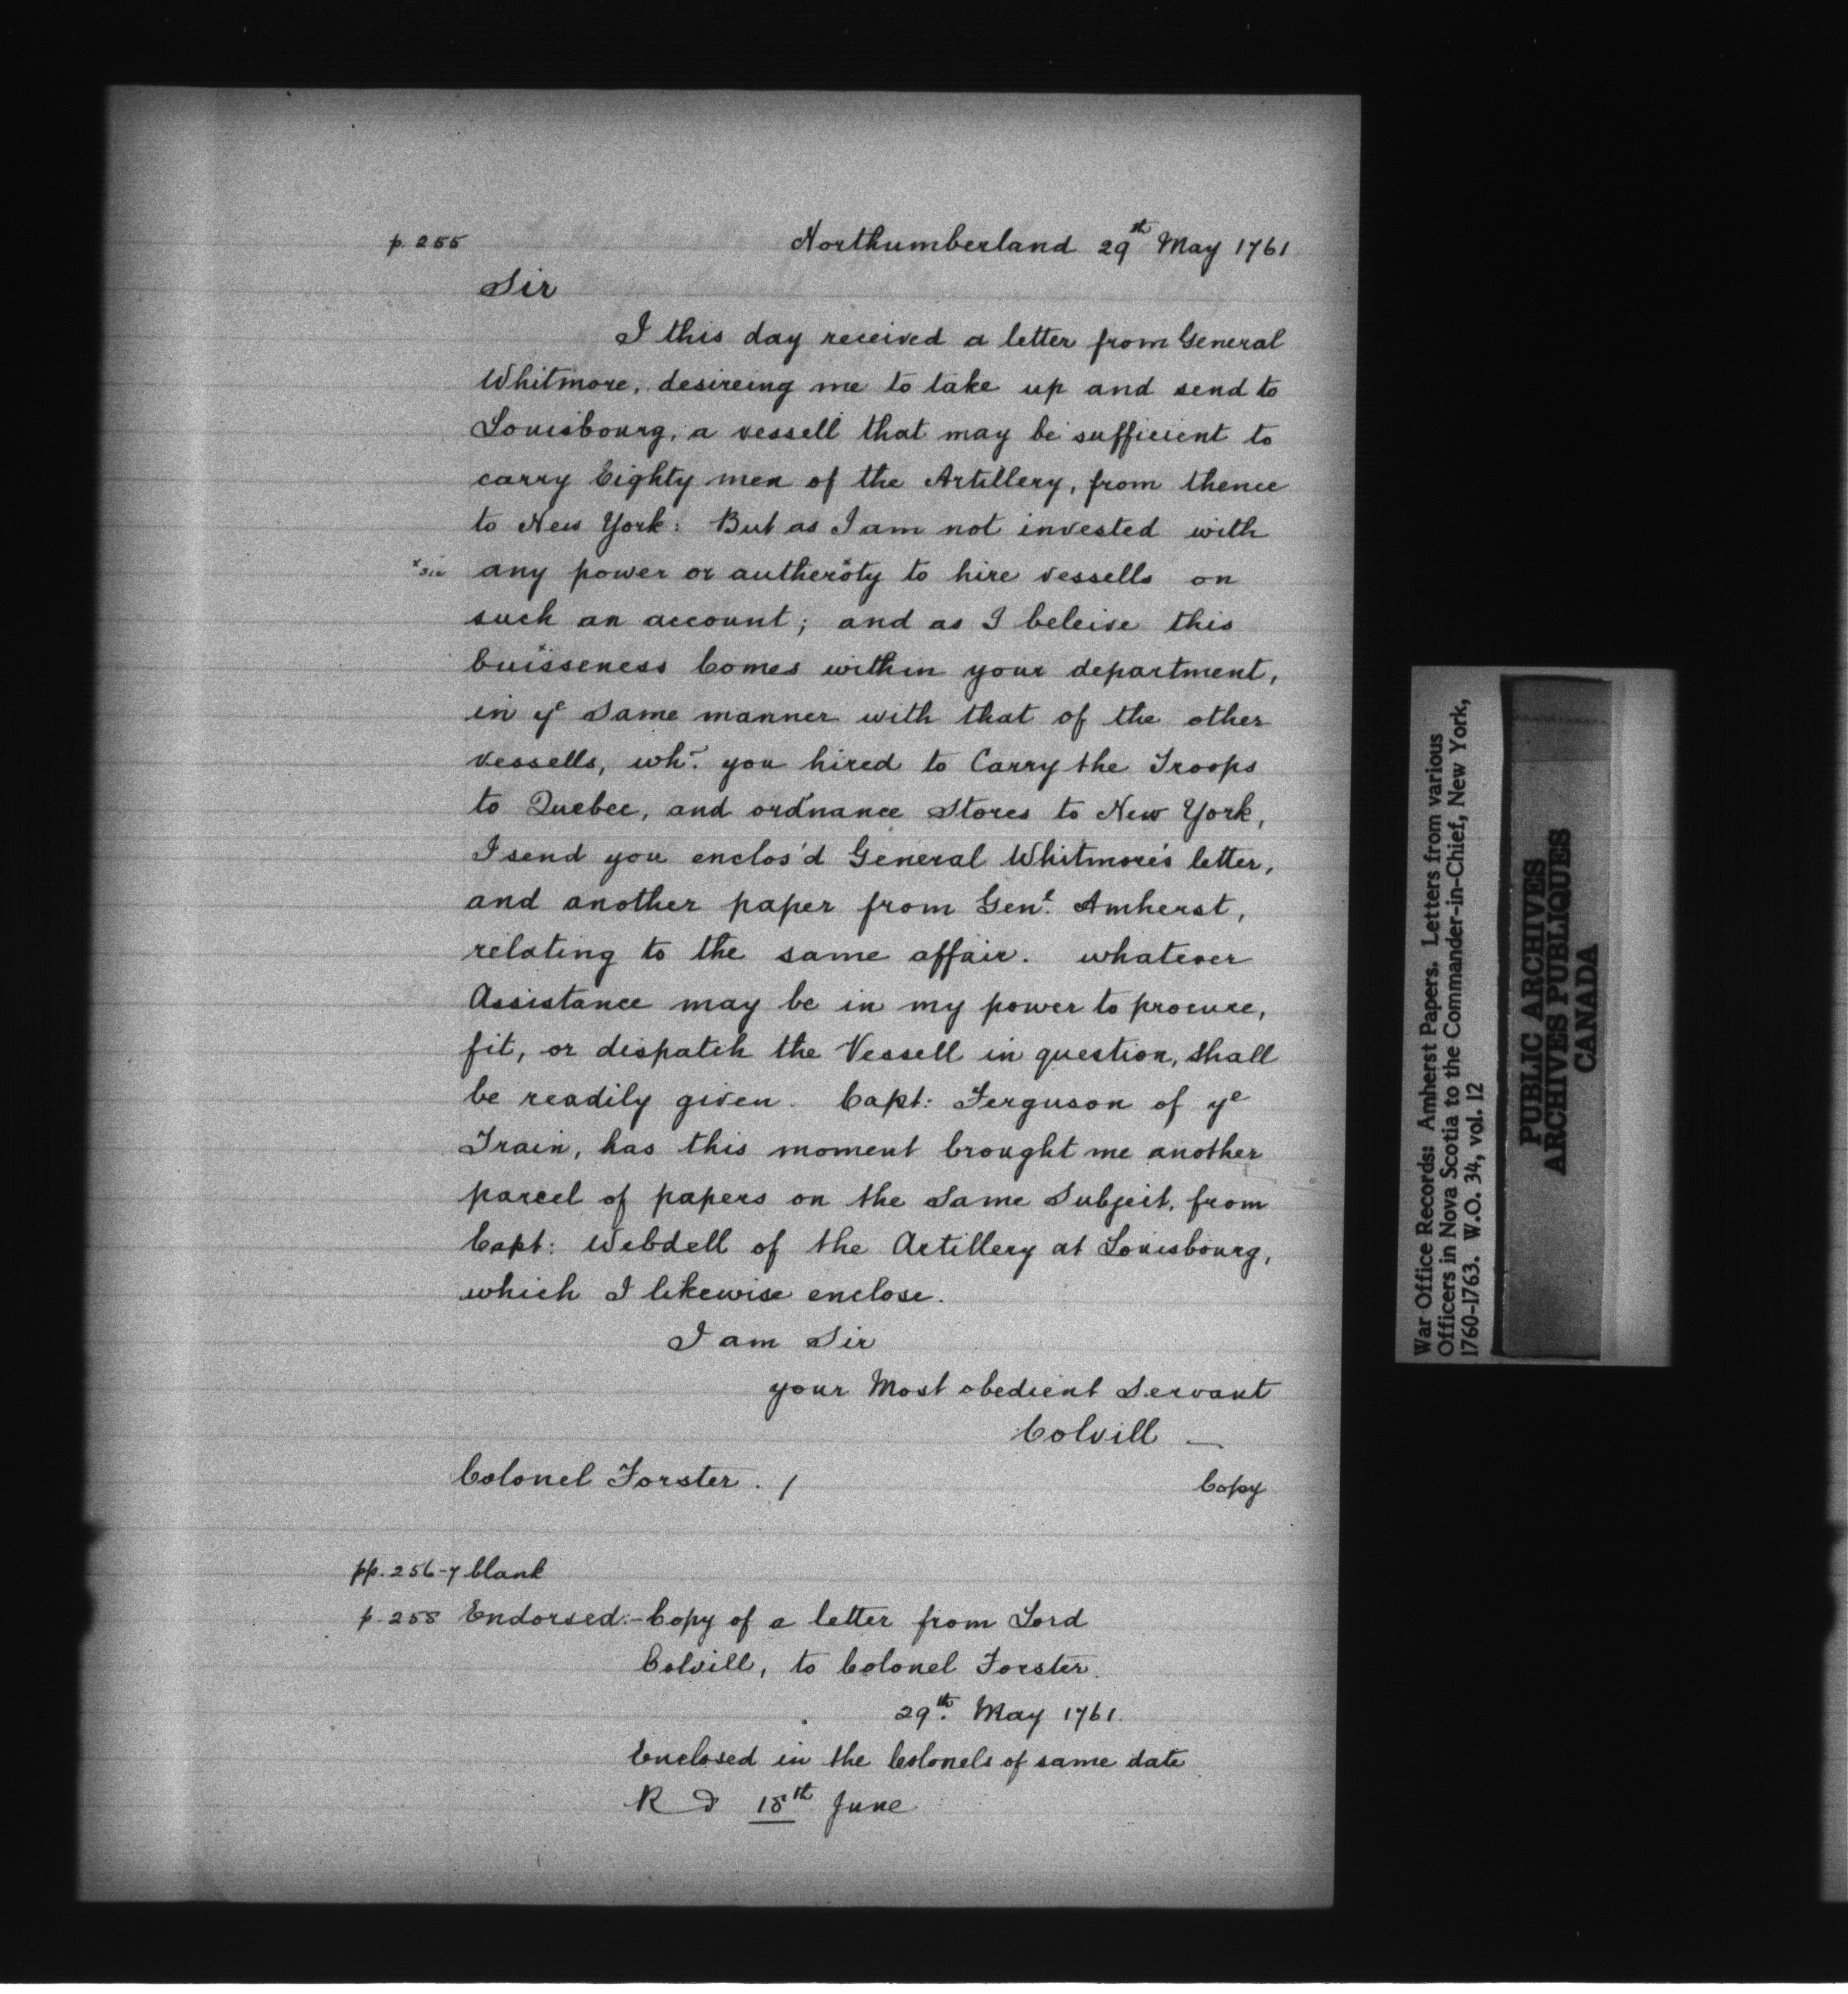 p. 255
Northumberland 29th May 1761
Sir
I this day received a letter from General
Whitmore, desireing me to take up and send to
Louisbourg, a vessell that may be sufficient to
carry Eighty men of the Artillery, from thence
to New York: But as I am not invested with
x sic any power or autheroty to hire vessells on
such an account; and as I beleive this
buisseness Comes within your department,
in ye Same manner with that of the other
vessells, wh. you hired to Carry the Troops
to Quebec, and ordnance Stores to New York,
I send you enclos'd General Whitmore's letter,
and another paper from Genl. Amherst,
relating to the same affair. whatever
Assistance may be in my power to procure,
fit, or dispatch the Vessell in question, shall
be readily given. Capt: Ferguson of ye
Train, has this moment brought me another
parcel of papers on the Same Subject, from
Capt: Webdell of the Artillery at Louisbourg,
which I likewise enclose.
I am Sir
your Most obedient Servant
Colvill —
Colonel Forster. /
Copy
pp. 256-7 blank
p. 258 Endorsed:- Copy of a letter from Lord
Colvill, to Colonel Forster.
29th. May 1761.
Enclosed in the Colonels of same date
R d 18th June
War Office Records: Amherst Papers. Letters from various
Officers in Nova Scotia to the Commander-in-Chief, New York,
1760-1763. W.O. 34, vol. 12
PUBLIC ARCHIVES
ARCHIVES PUBLIQUES
CANADA